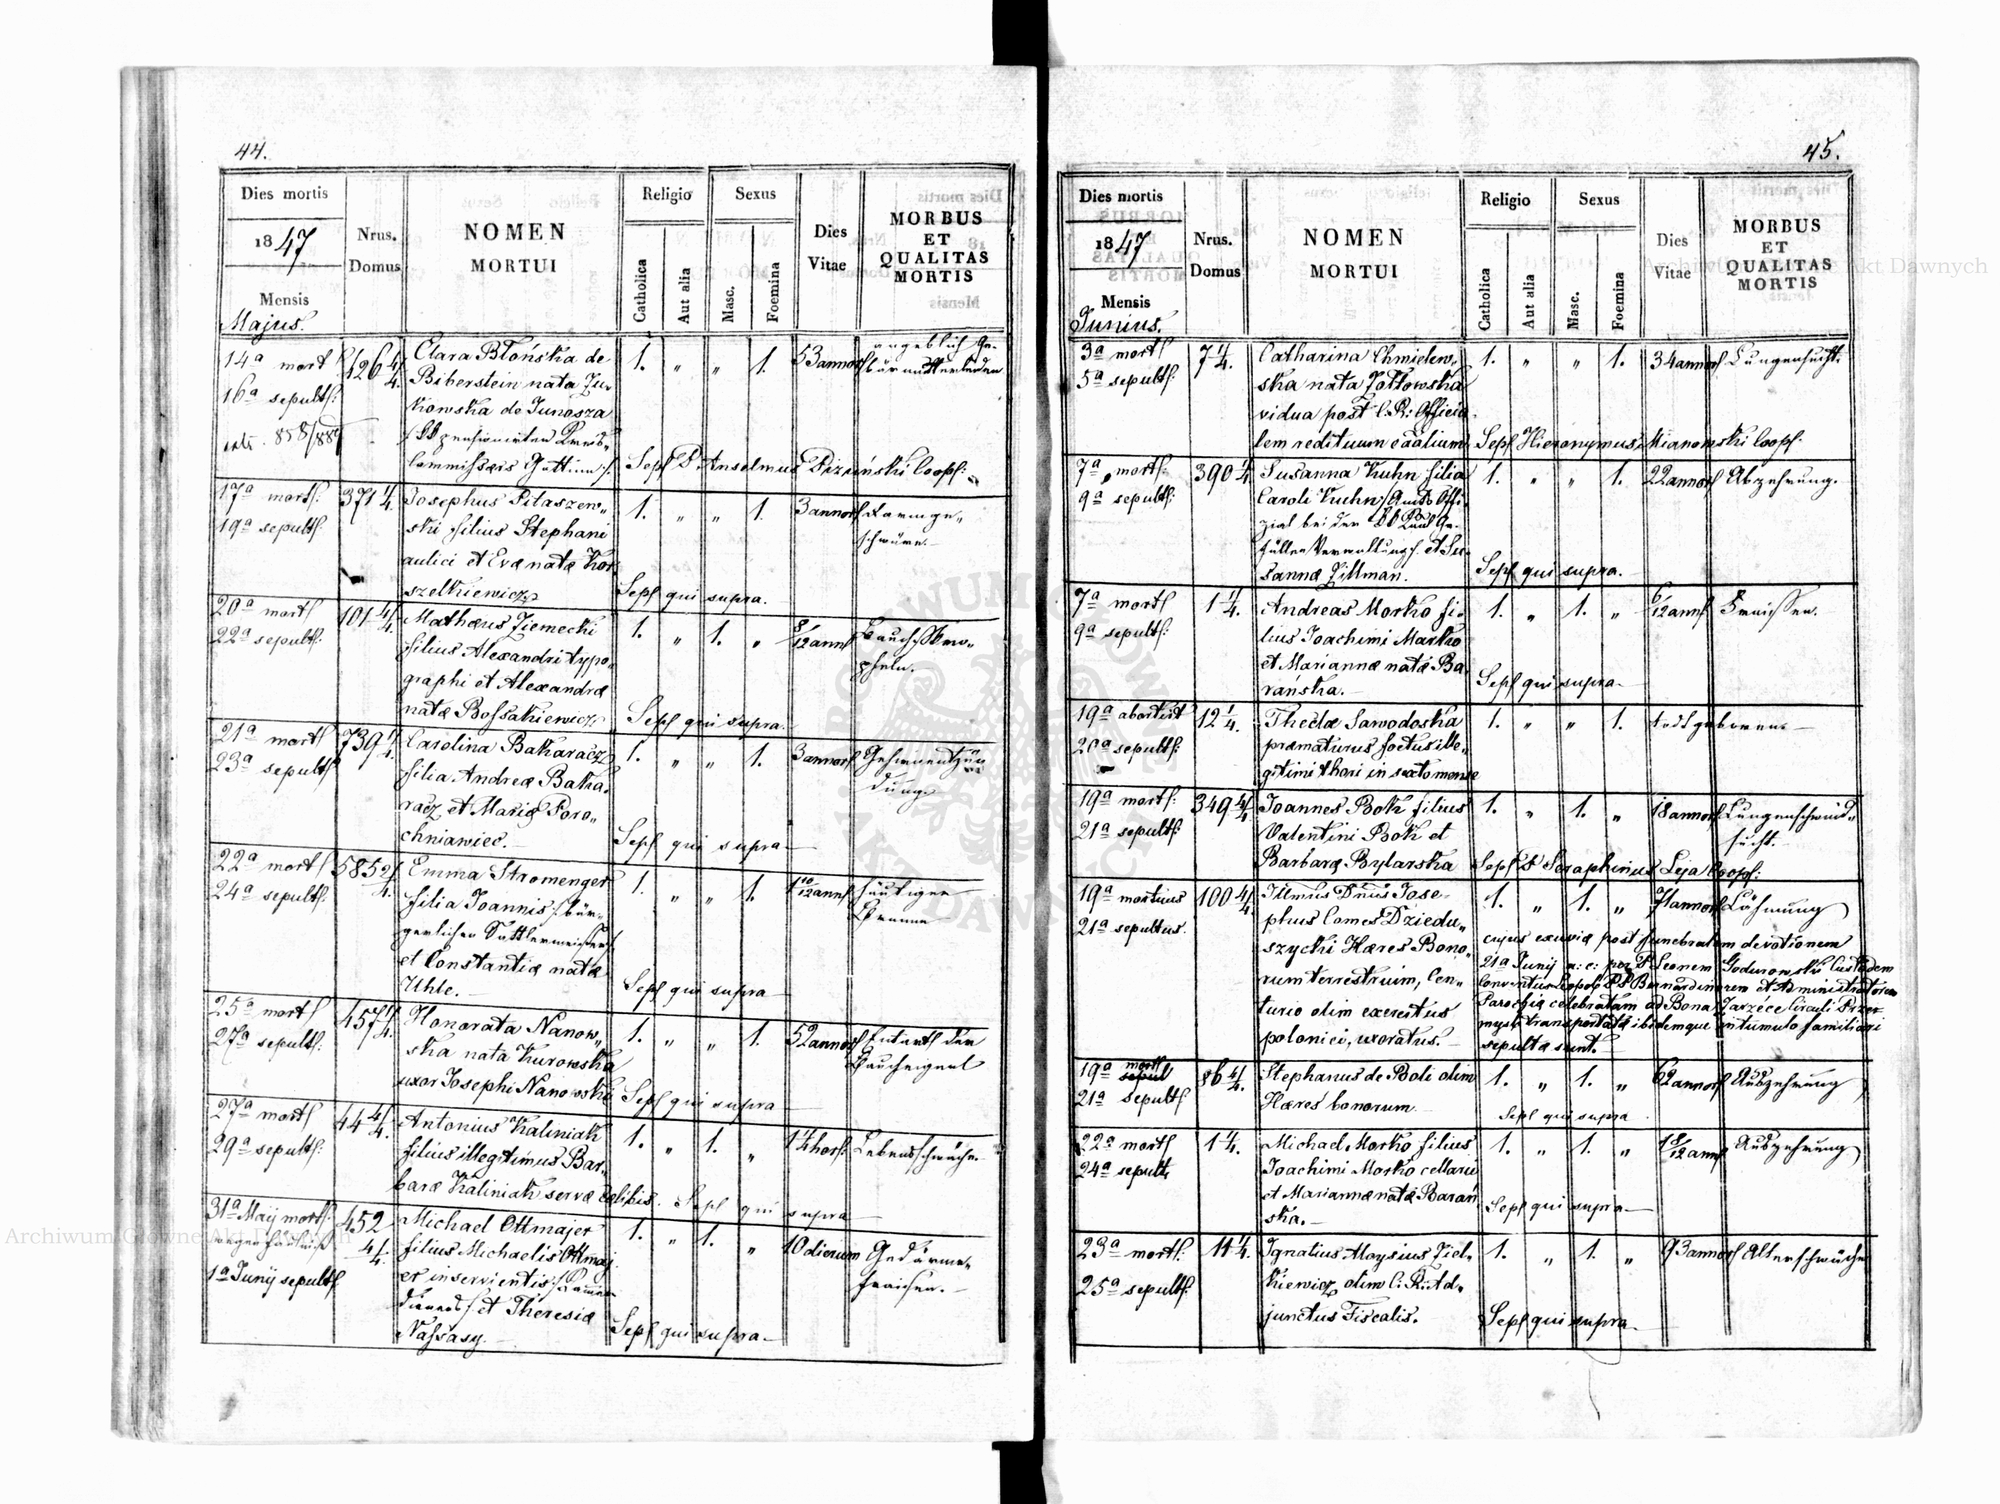 44.
Dies mortis
1847
Mensis
Majus.
Nrus.
Domus
NOMEN
MORTUI
Religio
Catholica
Aut alia
Sexus
Masc.
Foemina
Dies
Vitae
MORBUS
ET
QUALITAS
MORTIS
14a mort
16a sepult:
426 4/4
Clara Błońska de
Biberstein nata Żu-
kowska de Junosza
k k pensionirten Kreis-
Commissärs Gattin
1. " " 1.
53 annor
angeblich Ge-
bärmutterleiden
Sepl P Anselmus Dizeński Coop:
17a mort:
19a sepult:
371 4/4
Josephus Pitaszew-
ski filius Stephani
aulici et Evæ natæ Kor-
szelkiewicz
1. " " 1.
3 annor
Darmge-
schwüre.
Sepl qui supra.
20a mort
22a sepult:
101 4/4
Mathæus Ziemecki
filius Alexandri typo-
graphi et Alexandræ
natæ Bossakiewicz
1. " 1. "
8/12 ann
Bauchskro-
pheln.
Sepl qui supra.
21a mort
23a sepult
739 4/4
Carolina Bakaracz
filia Andreæ Baka-
racz et Mariæ Poro-
chniawiec.
1. " " 1.
3 annor
Gehirnentzün
dung
Sepl qui supra
22a mort
24a sepult:
585 2/4
Emma Stromenger
filia Joannis bür-
gerlichen Sattlermeisters
et Constantiæ natæ
Uhle.
1. " " 1.
1 10/12 ann
häutiger
Bräune
Sepl qui supra
25a mort
27a sepult:
457 1/4
Honorata Nanow-
ska nata Kurowska
uxor Josephi Nanowski
1. " " 1.
52 annor
Entart der
Baucheigend
Sepl qui supra
27a mort
29a sepult:
44 4/4
Antonius Kaliniak
filius illegitimus Bar-
baræ Kaliniak servæ cælibis.
1. " 1. "
14 hor:
Lebensschwäche
Sepl qui supra
31a Maij mort:
1a Junij sepult
452 4/4
Michael Ottmajer
filius Michaelis Ottmaj-
er inservientis
dieners et Theresiæ
Nassasy.
1. " 1. "
10 dierum
Gedärme-
fraisen.
Sepl qui supra
45.
Dies mortis
1847
Mensis
Junius.
Nrus.
Domus
NOMEN
MORTUI
Religio
Catholica
Aut alia
Sexus
Masc.
Foemina
Dies
Vitae
MORBUS
ET
QUALITAS
MORTIS
3a mort
5a sepult:
7 4/4.
Catharina Chmielew-
ska nata Żołtowska
vidua post C. R: Officia-
lem redituum cæalium
1. " " 1.
34 annor
Lungensucht.
Sepl Hieronymus Mianowski Coop:
7a mort:
9a sepult:
390 1/4
Susanna Kuhn filia
Caroli Kuhn Amts Offi-
zial bei der k k Kaal Ge-
fällen Verwaltung et Su-
sannæ Zillman.
1. " " 1.
22 annor
Abzehrung.
Sepl qui supra.
7a mort
9a sepult:
1 1/4.
Andreas Morko fi-
lius Joachimi Morko
et Mariannæ natæ Ba-
rańska.
1. " 1. "
6/12 ann
Fraissen.
Sepl qui supra
19a abortirt
20a sepult:
12 1/4.
Theclæ Sawodoska
præmaturus foetus ille-
gitimi thori in sexto mense
1. " " 1.
todtgeboren
19a mort:
21a sepult:
349 4/4
Joannes Bok filius
Valentini Bok et
Barbaræ Bylarska
1. " 1. "
18 annor
Lungenschwind-
sucht.
Sepl P Seraphinus Leja Coop:
19a mortuus
21a sepultus.
100 4/4
Illmus Dnus Jose-
phus Comes Dziedu-
szycki Hæres Bono-
rum terrestrium, Cen-
turio olim exercitus
polonici, uxoratus.
1. " 1. "
71 annor
Lähmung
cujus exuviæ post funebralem devotionem
21a Junij a: c: per P Leonem Godurowski Custodem
Conventus Leopol PP Bernardinorum et Administratorem
Parochiæ celebratam ad Bona Zarzéce Circuli Przer-
mysl: transportatæ ibidemque in tumulo familiari
sepultæ sunt.
19a mort
21a sepult
86 4/4.
Stephanus de Boli olim
Hæres bonorum
1. " 1. "
62 annor
Auszehrung
Sepl qui supra
22a mort
24a sepult
1 4/4.
Michael Morko filius
Joachimi Morko cellarii
et Mariannæ natæ Barań
ska.
1. " 1. "
1 8/12 ann
Auszehrung
Sepl qui supra
23a mort:
25a sepult:
11 4/4.
Ignatius Aloysius Ziel-
kiewicz olim C. R. Ad-
junctus Fiscalis.
1. " 1. "
93 annor
Altersschwäche
Sepl qui supra
Archiwum Główne Akt Dawnych
ARCHIWUM GŁÓWNE AKT DAWNYCH